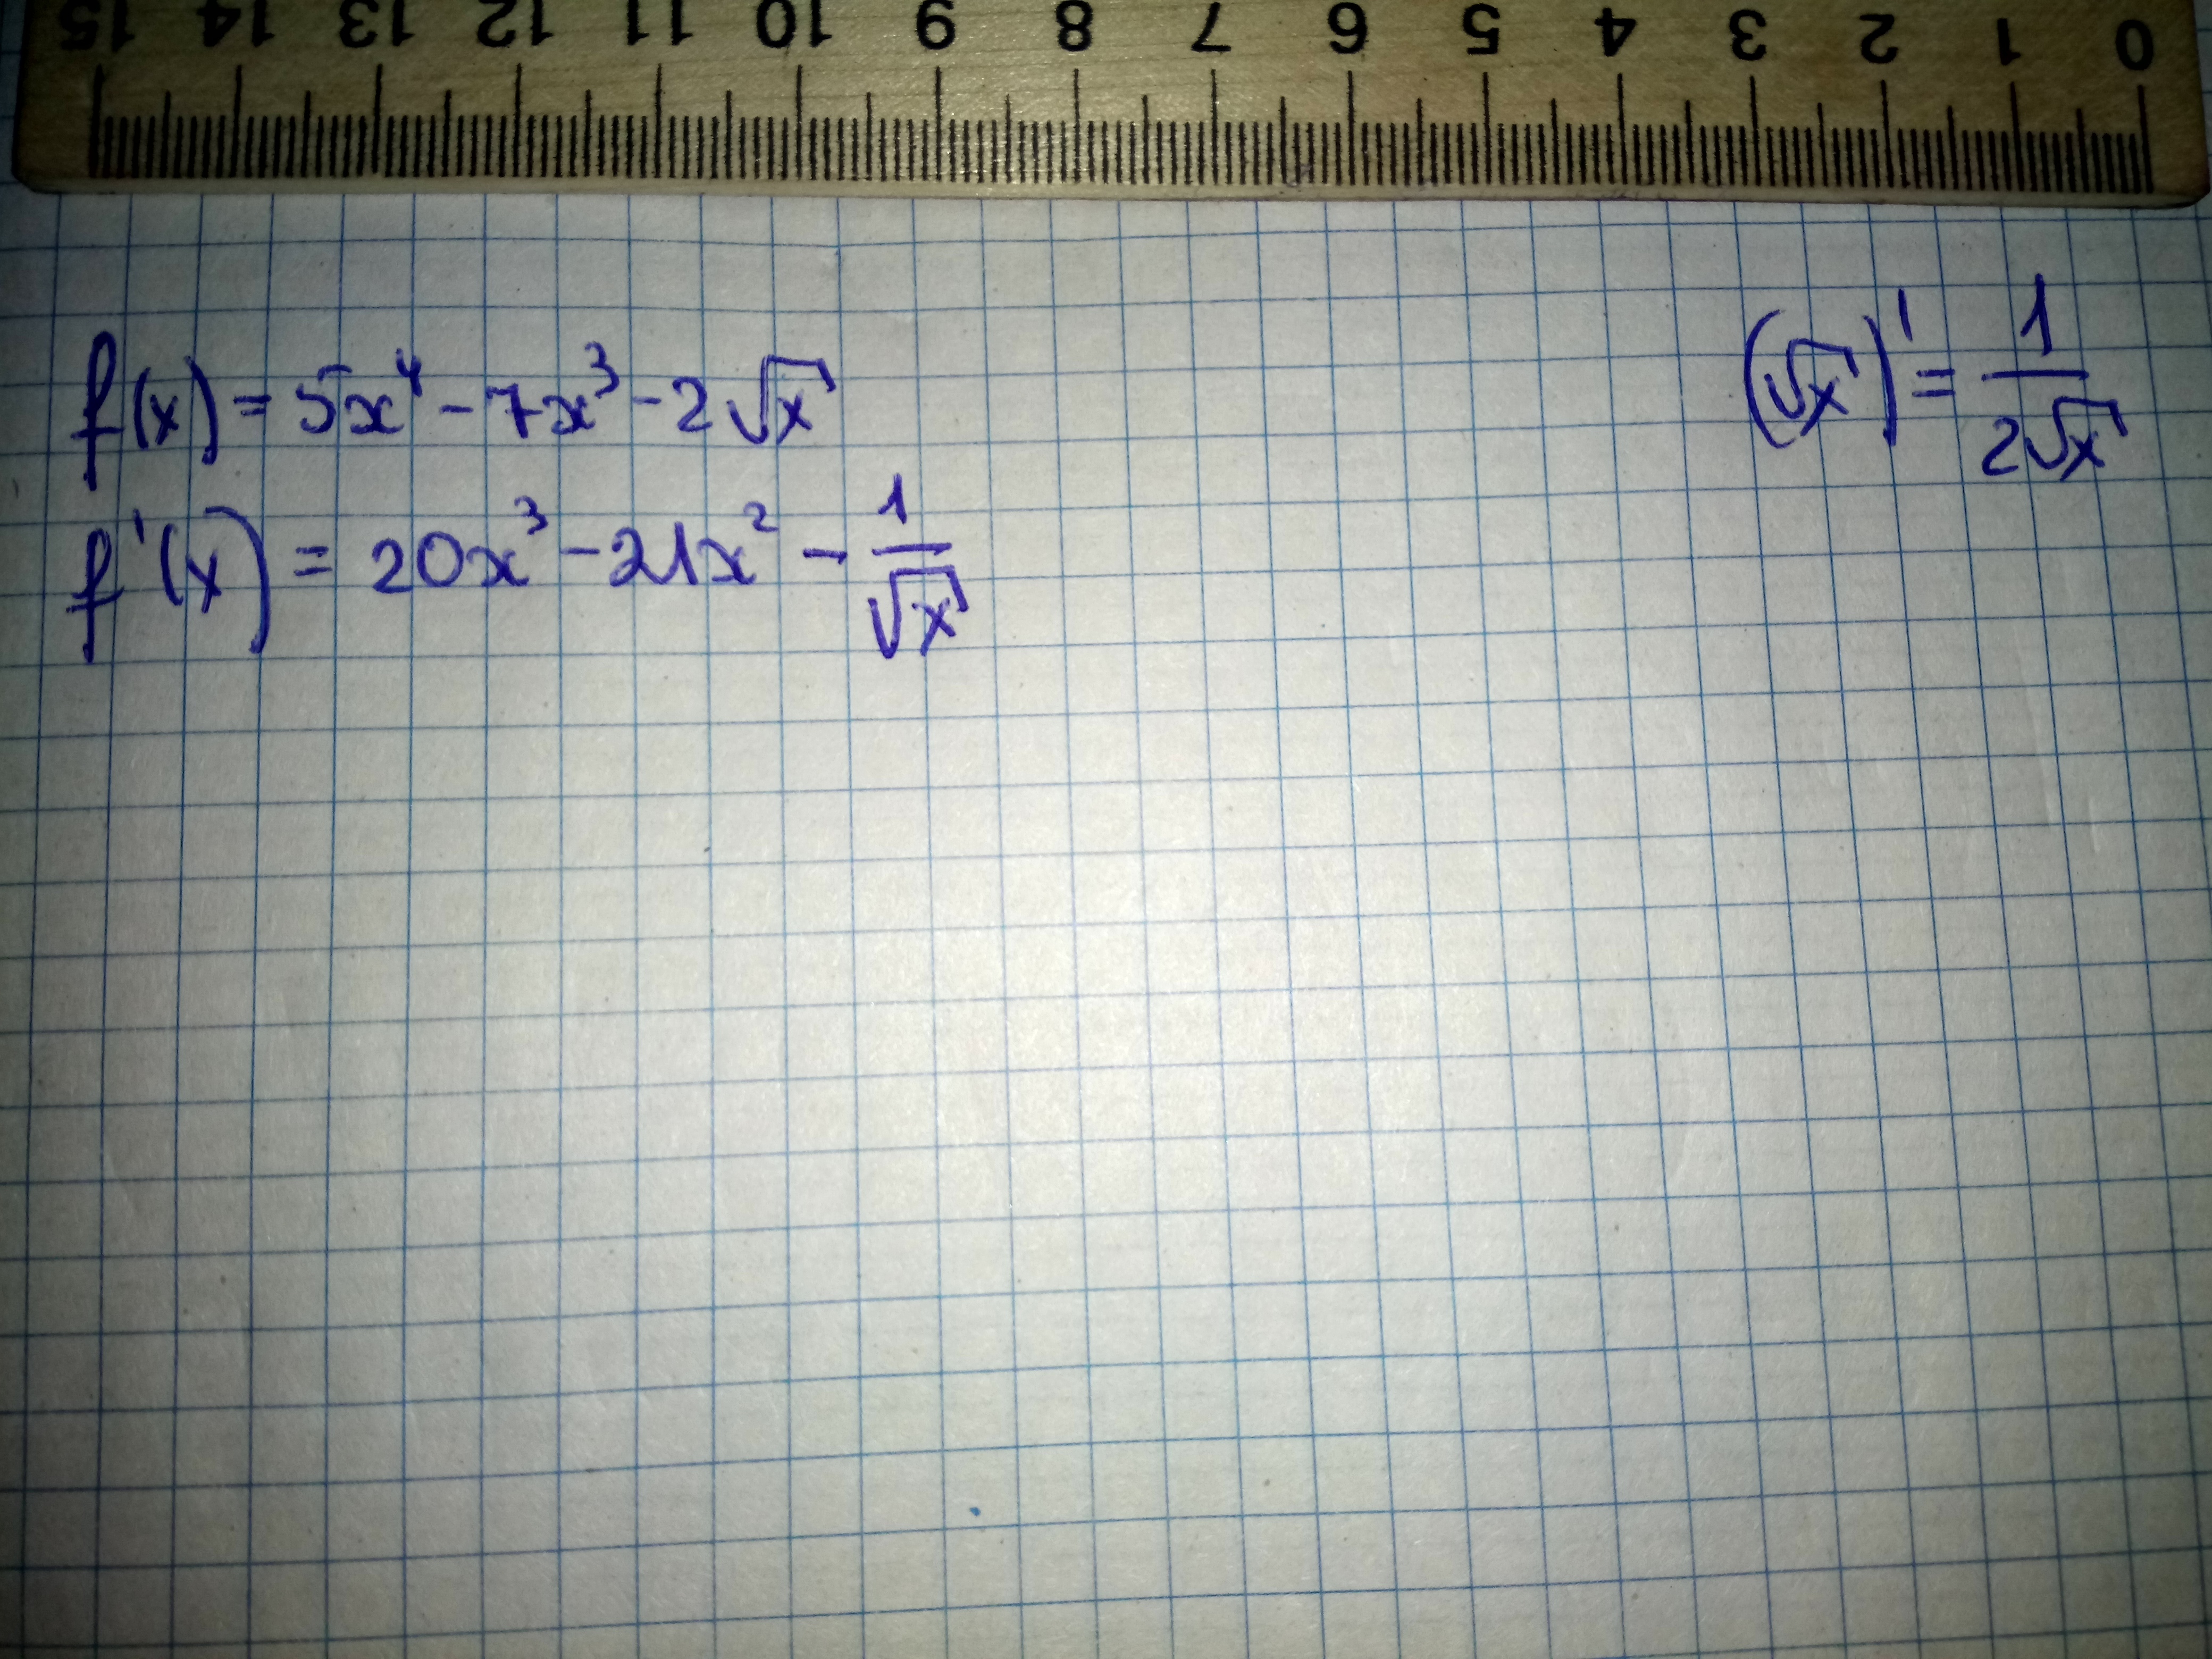 15 14 13 12 11 10 9 8 7 6 5 4 3 2 1 0
f(x) = 5x⁴ - 7x³ - 2√x
(√x)' = 1/(2√x)
f'(x) = 20x³ - 21x² - 1/√x